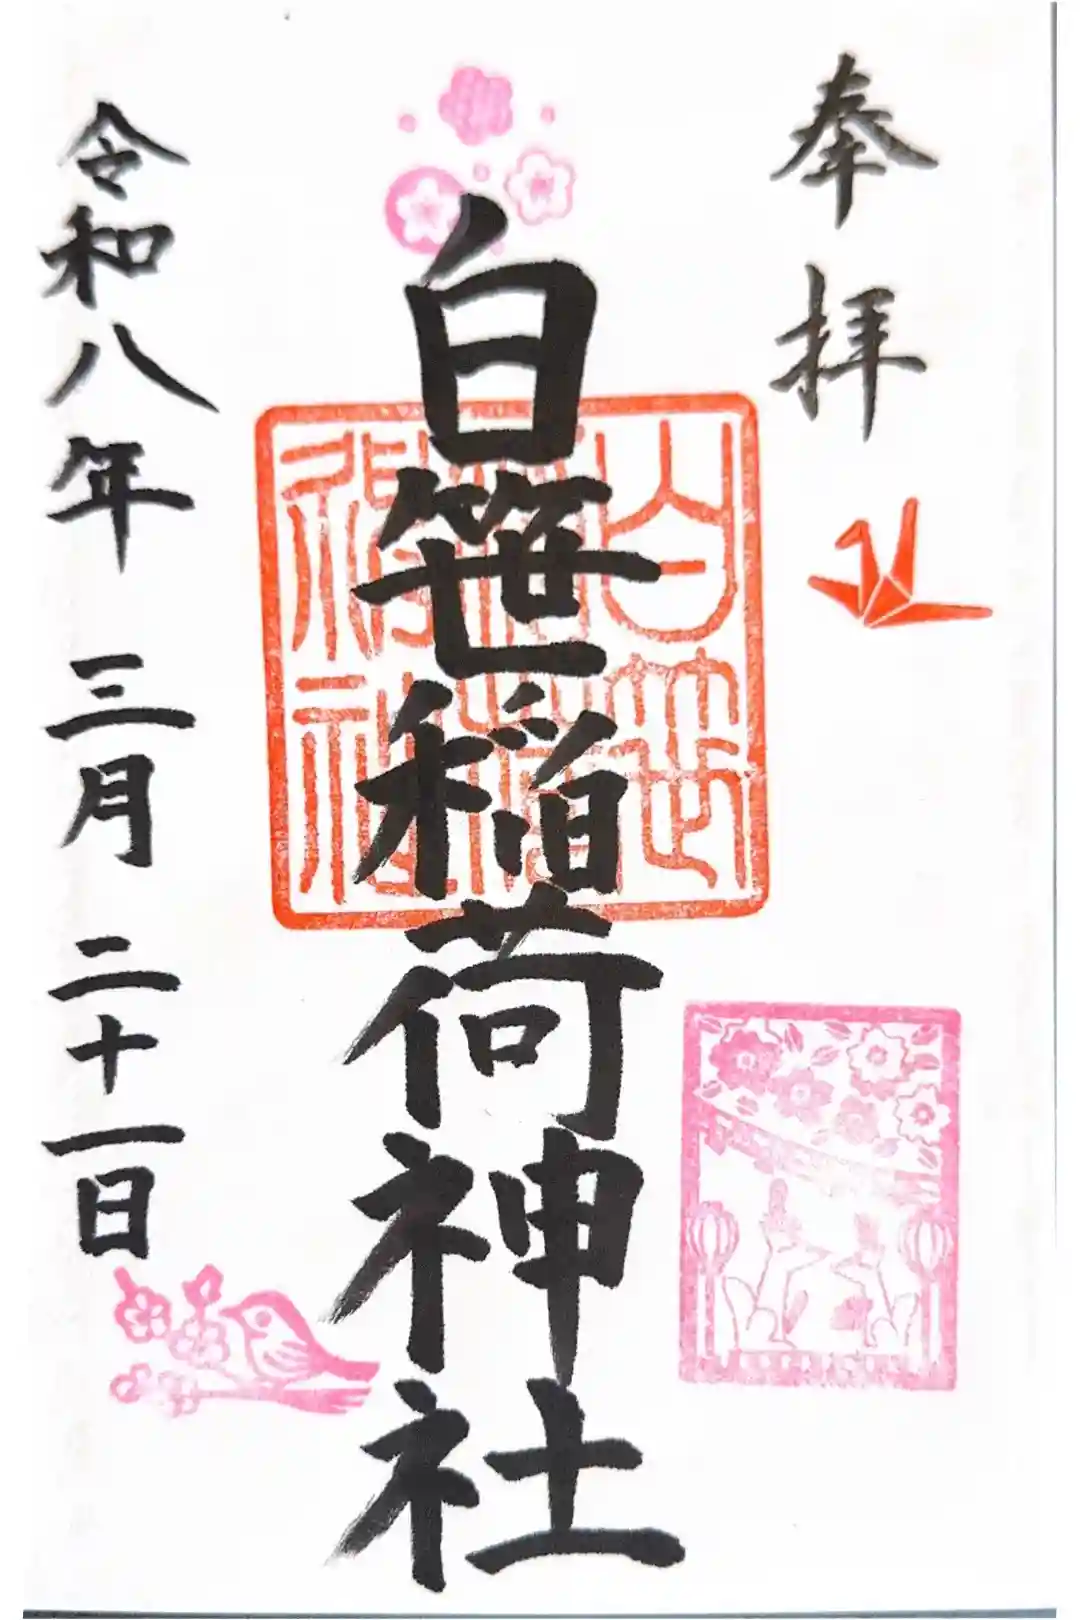 奉拝
白笹稲荷神社
白笹
稲荷
神社
令和八年 三月 二十一日